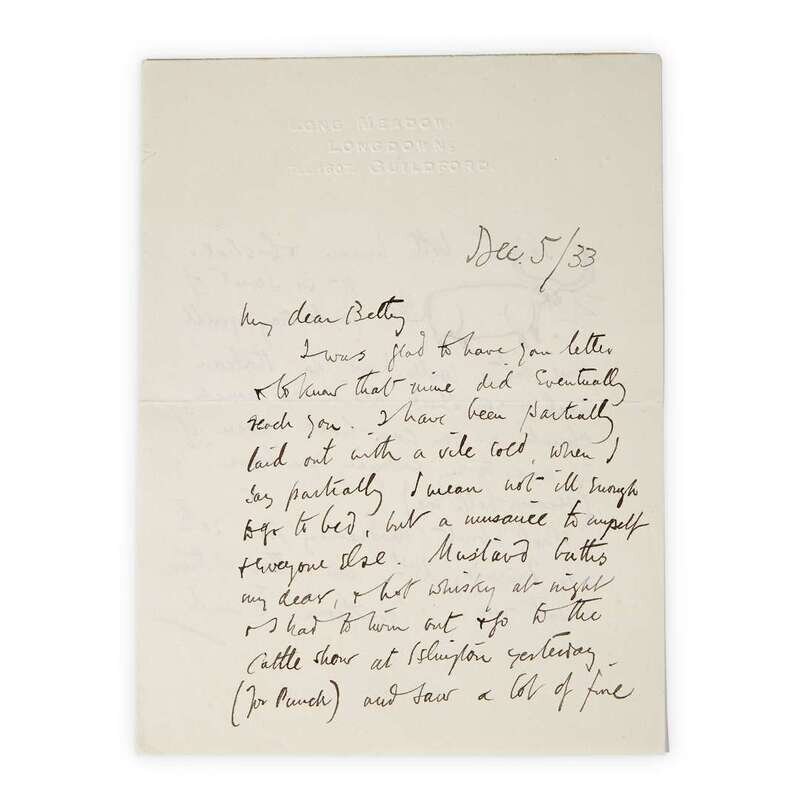 LONG MEADOW,
LONGDOWN,
GUILDFORD.
Dec. 5/33
My dear Betty
I was glad to have you letter
& to know that mine did Eventually
reach you. I have been partially
laid out with a vile cold, when I
say partially I mean not ill enough
to go to bed, but a nusance to myself
& everyone Else. Mustard baths
my dear, & hot whisky at night
& I had to turn out & go to the
Cattle show at Islington yesterday
(for Punch) and saw a lot of fine